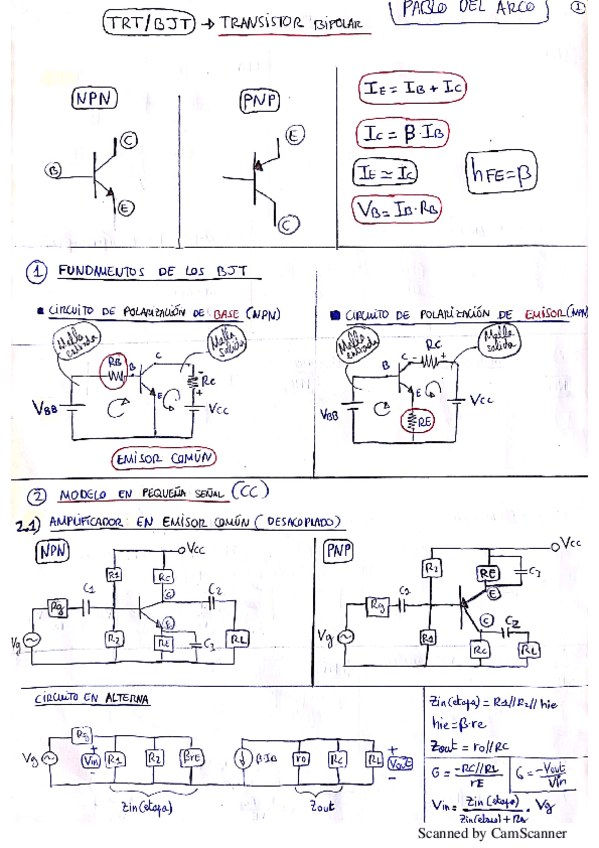 TRT/BJT → TRANSISTOR BIPOLAR
PABLO DEL ARCO
1
NPN
C
B
E
PNP
E
C
IE = IB + IC
IC = β·IB
IE ≃ IC
VB = IB·RB
hFE = β
1 FUNDAMENTOS DE LOS BJT
CIRCUITO DE POLARIZACIÓN DE BASE (NPN)
Malla entrada
Malla salida
RB
B
C
E
RC
VBB
VCC
EMISOR COMÚN
CIRCUITO DE POLARIZACIÓN DE EMISOR (NPN)
Malla entrada
Malla salida
RC
B
C
E
RE
VBB
VCC
2 MODELO EN PEQUEÑA SEÑAL (CC)
2.1) AMPLIFICADOR EN EMISOR COMÚN (DESACOPLADO)
NPN
VCC
R1
RC
C1
C2
Rg
C
E
Vg
R2
RE
C3
RL
PNP
VCC
R2
RE
C3
E
Rg
C1
C
C2
Vg
R1
RC
RL
CIRCUITO EN ALTERNA
Rg
Vg
+
Vin
-
R1
R2
βre
β·IB
ro
RC
RL
+
Vout
-
Zin(etapa)
Zout
Zin(etapa) = R1//R2//hie
hie = β·re
Zout = ro//RC
G = -RC//RL / rE
G = -Vout / Vin
Vin = Zin(etapa) / Zin(etapa) + Rg · Vg
Scanned by CamScanner